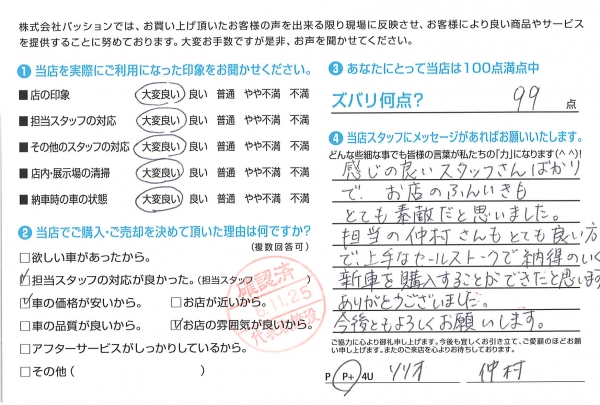 株式会社パッションでは、お買い上げ頂いたお客様の声を出来る限り現場に反映させ、お客様により良い商品やサービス
を提供することに努めております。大変お手数ですが是非、お声を聞かせてください。
❶ 当店を実際にご利用になった印象をお聞かせください。
■ 店の印象 大変良い 良い 普通 やや不満 不満
■ 担当スタッフの対応 大変良い 良い 普通 やや不満 不満
■ その他のスタッフの対応 大変良い 良い 普通 やや不満 不満
■ 店内・展示場の清掃 大変良い 良い 普通 やや不満 不満
■ 納車時の車の状態 大変良い 良い 普通 やや不満 不満
❷ 当店でご購入・ご売却を決めて頂いた理由は何ですか?
(複数回答可)
□欲しい車があったから。
☑担当スタッフの対応が良かった。(担当スタッフ
☑車の価格が安いから。 □お店が近いから。
□車の品質が良いから。 ☑お店の雰囲気が良いから。
□アフターサービスがしっかりしているから。
□その他( )
確認済
11.25
❸ あなたにとって当店は100点満点中
ズバリ何点? 99 点
❹ 当店スタッフにメッセージがあればお願いいたします。
どんな些細な事でも皆様の言葉が私たちの「力」になります(^^)!
感じの良いスタッフさんばかり
で、お店のふんいきも
とても素敵だと思いました。
担当の仲村さんもとても良い方
で、上手なセールストークで納得のいく
新車を購入することができたと思います
ありがとうございました。
今後ともよろしくお願いします。
ご協力に心より御礼申し上げます。今後も宜しくお引き立て、ご愛顧のほどお願
い申し上げます。またのご来店を心よりお待ちしております。
P P+ 4U ソリオ 仲村